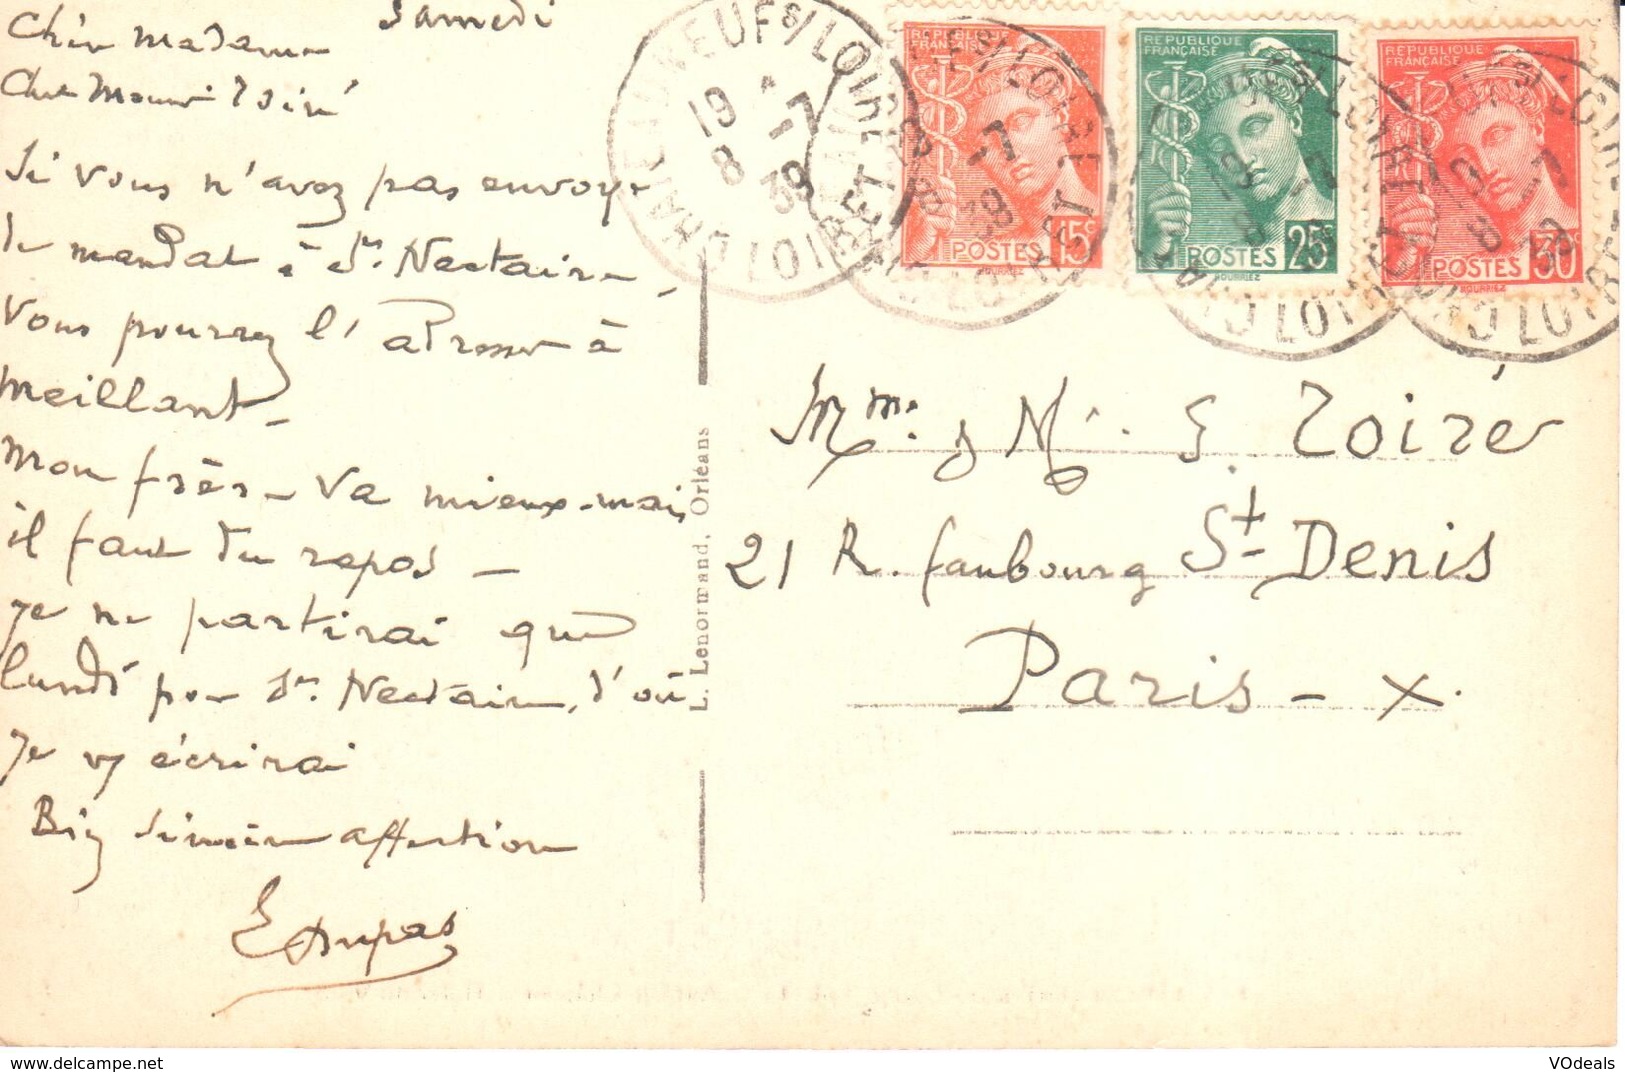 Samedi
Chère Madame
Cher Monsieur Zoiré
Si vous n'avez pas envoyé
le mandat à St. Nectaire,
vous pourrez l'adresser à
Meillant -
Mon frère va mieux - mais
il faut du repos -
Je ne partirai que
lundi pour St. Nectaire, d'où
je vs écrirai
Bien sincère affection
E Dupas
CHATEAUNEUF S/LOIRE
LOIRET
19 8
-7
39
REPUBLIQUE
FRANÇAISE
POSTES 15c
REPUBLIQUE
FRANÇAISE
POSTES 25c
BOURRIEZ
REPUBLIQUE
FRANÇAISE
POSTES 30c
BOURRIEZ
L. Lenormand, Orléans
Mme & Mr. E. Zoiré
21 R. faubourg St-Denis
Paris - X.
VOdeals